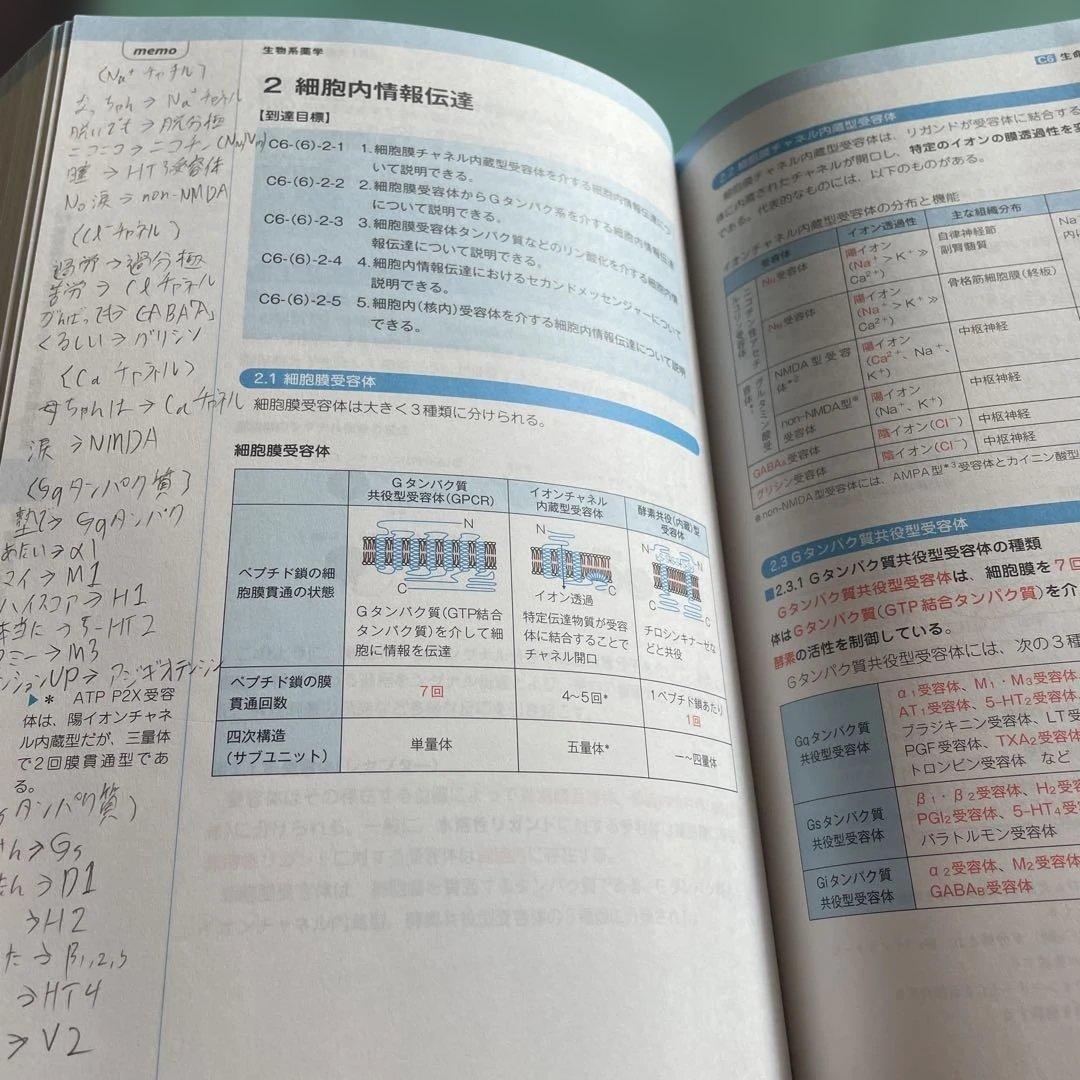 memo
(Na⁺チャネル)
なっちゃん⇒Na⁺チャネル
脱いでも⇒脱分極
ニコニコ⇒ニコチン(NN/NM)
瞳⇒HT3受容体
No涙⇒non-NMDA
(Cl⁻チャネル)
過労⇒過分極
苦労⇒Clチャネル
がんばっても⇒GABAA
くるしい⇒グリシン
(Caチャネル)
母ちゃんは⇒Caチャネル
涙⇒NMDA
(Gqタンパク質)
塾で⇒Gqタンパク
あたい⇒α1
マイ⇒M1
ハイスコア⇒H1
本当に⇒5-HT2
⇒M3
ションUP⇒アンギオテンシン
▶* ATP P2X受容
体は、陽イオンチャネ
ル内蔵型だが、三量体
で2回膜貫通型であ
る。
タンパク質)
⇒Gs
⇒D1
⇒H2
た⇒β1,2,3
⇒HT4
⇒V2
生物系薬学
2 細胞内情報伝達
【到達目標】
C6-(6)-2-1 1. 細胞膜チャネル内蔵型受容体を介する細胞内情報伝達につ
いて説明できる。
C6-(6)-2-2 2. 細胞膜受容体からGタンパク系を介する細胞内情報伝達
について説明できる。
C6-(6)-2-3 3. 細胞膜受容体タンパク質などのリン酸化を介する細胞内情
報伝達について説明できる。
C6-(6)-2-4 4. 細胞内情報伝達におけるセカンドメッセンジャーについて
説明できる。
C6-(6)-2-5 5. 細胞内(核内)受容体を介する細胞内情報伝達について説明
できる。
2.1 細胞膜受容体
細胞膜受容体は大きく3種類に分けられる。
細胞膜受容体
Gタンパク質
共役型受容体(GPCR)
イオンチャネル
内蔵型受容体
酵素共役(内蔵)型
受容体
ペプチド鎖の細
胞膜貫通の状態
N
C
Gタンパク質(GTP結合
タンパク質)を介して細
胞に情報を伝達
N
C
イオン透過
特定伝達物質が受容
体に結合することで
チャネル開口
N
C
C
チロシンキナーゼな
どと共役
ペプチド鎖の膜
貫通回数
7回
4~5回*
1ペプチド鎖あたり
1回
四次構造
(サブユニット)
単量体
五量体*
一~四量体
C6 生命
2.2 細胞膜チャネル内蔵型受容体
細胞膜チャネル内蔵型受容体は、リガンドが受容体に結合する
体に内蔵されたチャネルが開口し、特定のイオンの膜透過性を変
である。代表的なものには、以下のものがある。
イオンチャネル内蔵型受容体の分布と機能
受容体
イオン透過性
主な組織分布
ニコチン性アセチルコリン受容体
NN受容体
陽イオン
(Na⁺>K⁺≫
Ca²⁺)
自律神経節
副腎髄質
内に
NM受容体
陽イオン
(Na⁺>K⁺≫
Ca²⁺)
骨格筋細胞膜(終板)
グルタミン酸受容体
NMDA型受容
体*²
陽イオン
(Ca²⁺、Na⁺、
K⁺)
中枢神経
non-NMDA型*
受容体
陽イオン
(Na⁺、K⁺)
中枢神経
GABAA受容体
陰イオン(Cl⁻)
中枢神経
グリシン受容体
陰イオン(Cl⁻)
中枢神経
*non-NMDA型受容体には、AMPA型*³受容体とカイニン酸型
2.3 Gタンパク質共役型受容体
■2.3.1 Gタンパク質共役型受容体の種類
Gタンパク質共役型受容体は、細胞膜を7回
体はGタンパク質(GTP結合タンパク質)を介
酵素の活性を制御している。
Gタンパク質共役型受容体には、次の3種
Gqタンパク質
共役型受容体
α1受容体、M1・M3受容体
AT1受容体、5-HT2受容体
ブラジキニン受容体、LT受
PGF受容体、TXA2受容体
トロンビン受容体 など
Gsタンパク質
共役型受容体
β1・β2受容体、H2受
PGI2受容体、5-HT4受
パラトルモン受容体
Giタンパク質
共役型受容体
α2受容体、M2受容体
GABAB受容体